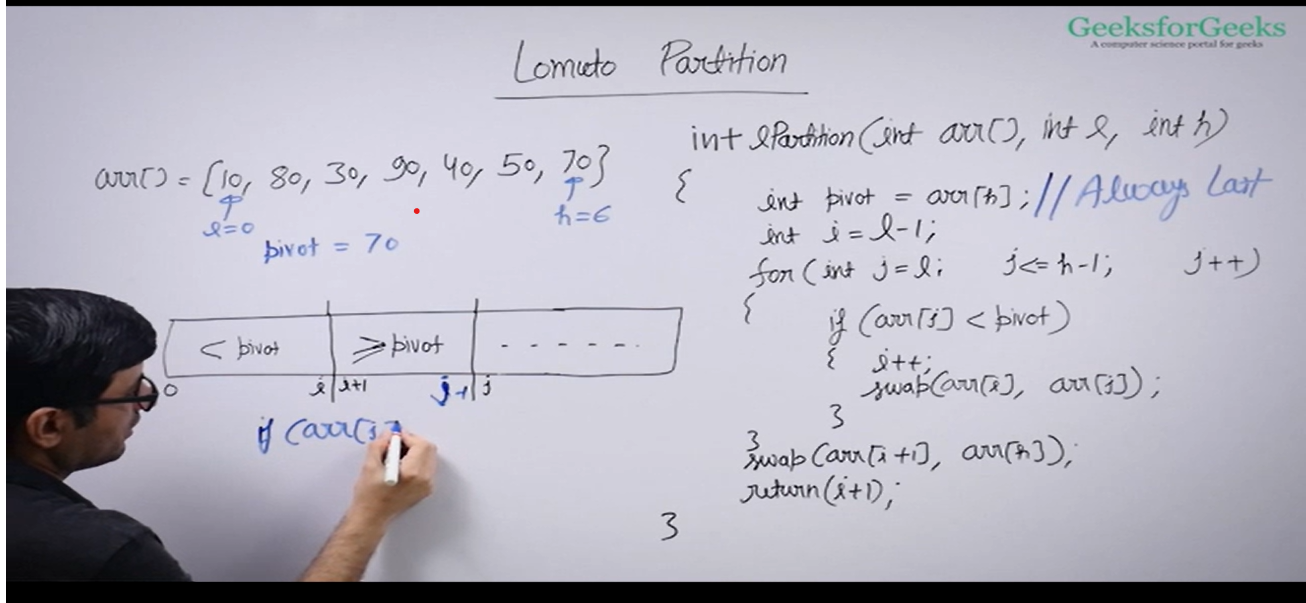 GeeksforGeeks
A computer science portal for geeks
Lomuto Partition
arr[] = {10, 80, 30, 90, 40, 50, 70}
l=0
h=6
pivot = 70
< pivot
≥ pivot
- - - - - -
0 i i+1 j-1 j
if (arr[j]
int lPartition(int arr[], int l, int h)
{
int pivot = arr[h]; // Always Last
int i = l-1;
for (int j=l; j<=h-1; j++)
{
if (arr[j] < pivot)
{ i++;
swap(arr[i], arr[j]);
}
}
swap(arr[i+1], arr[h]);
return(i+1);
}